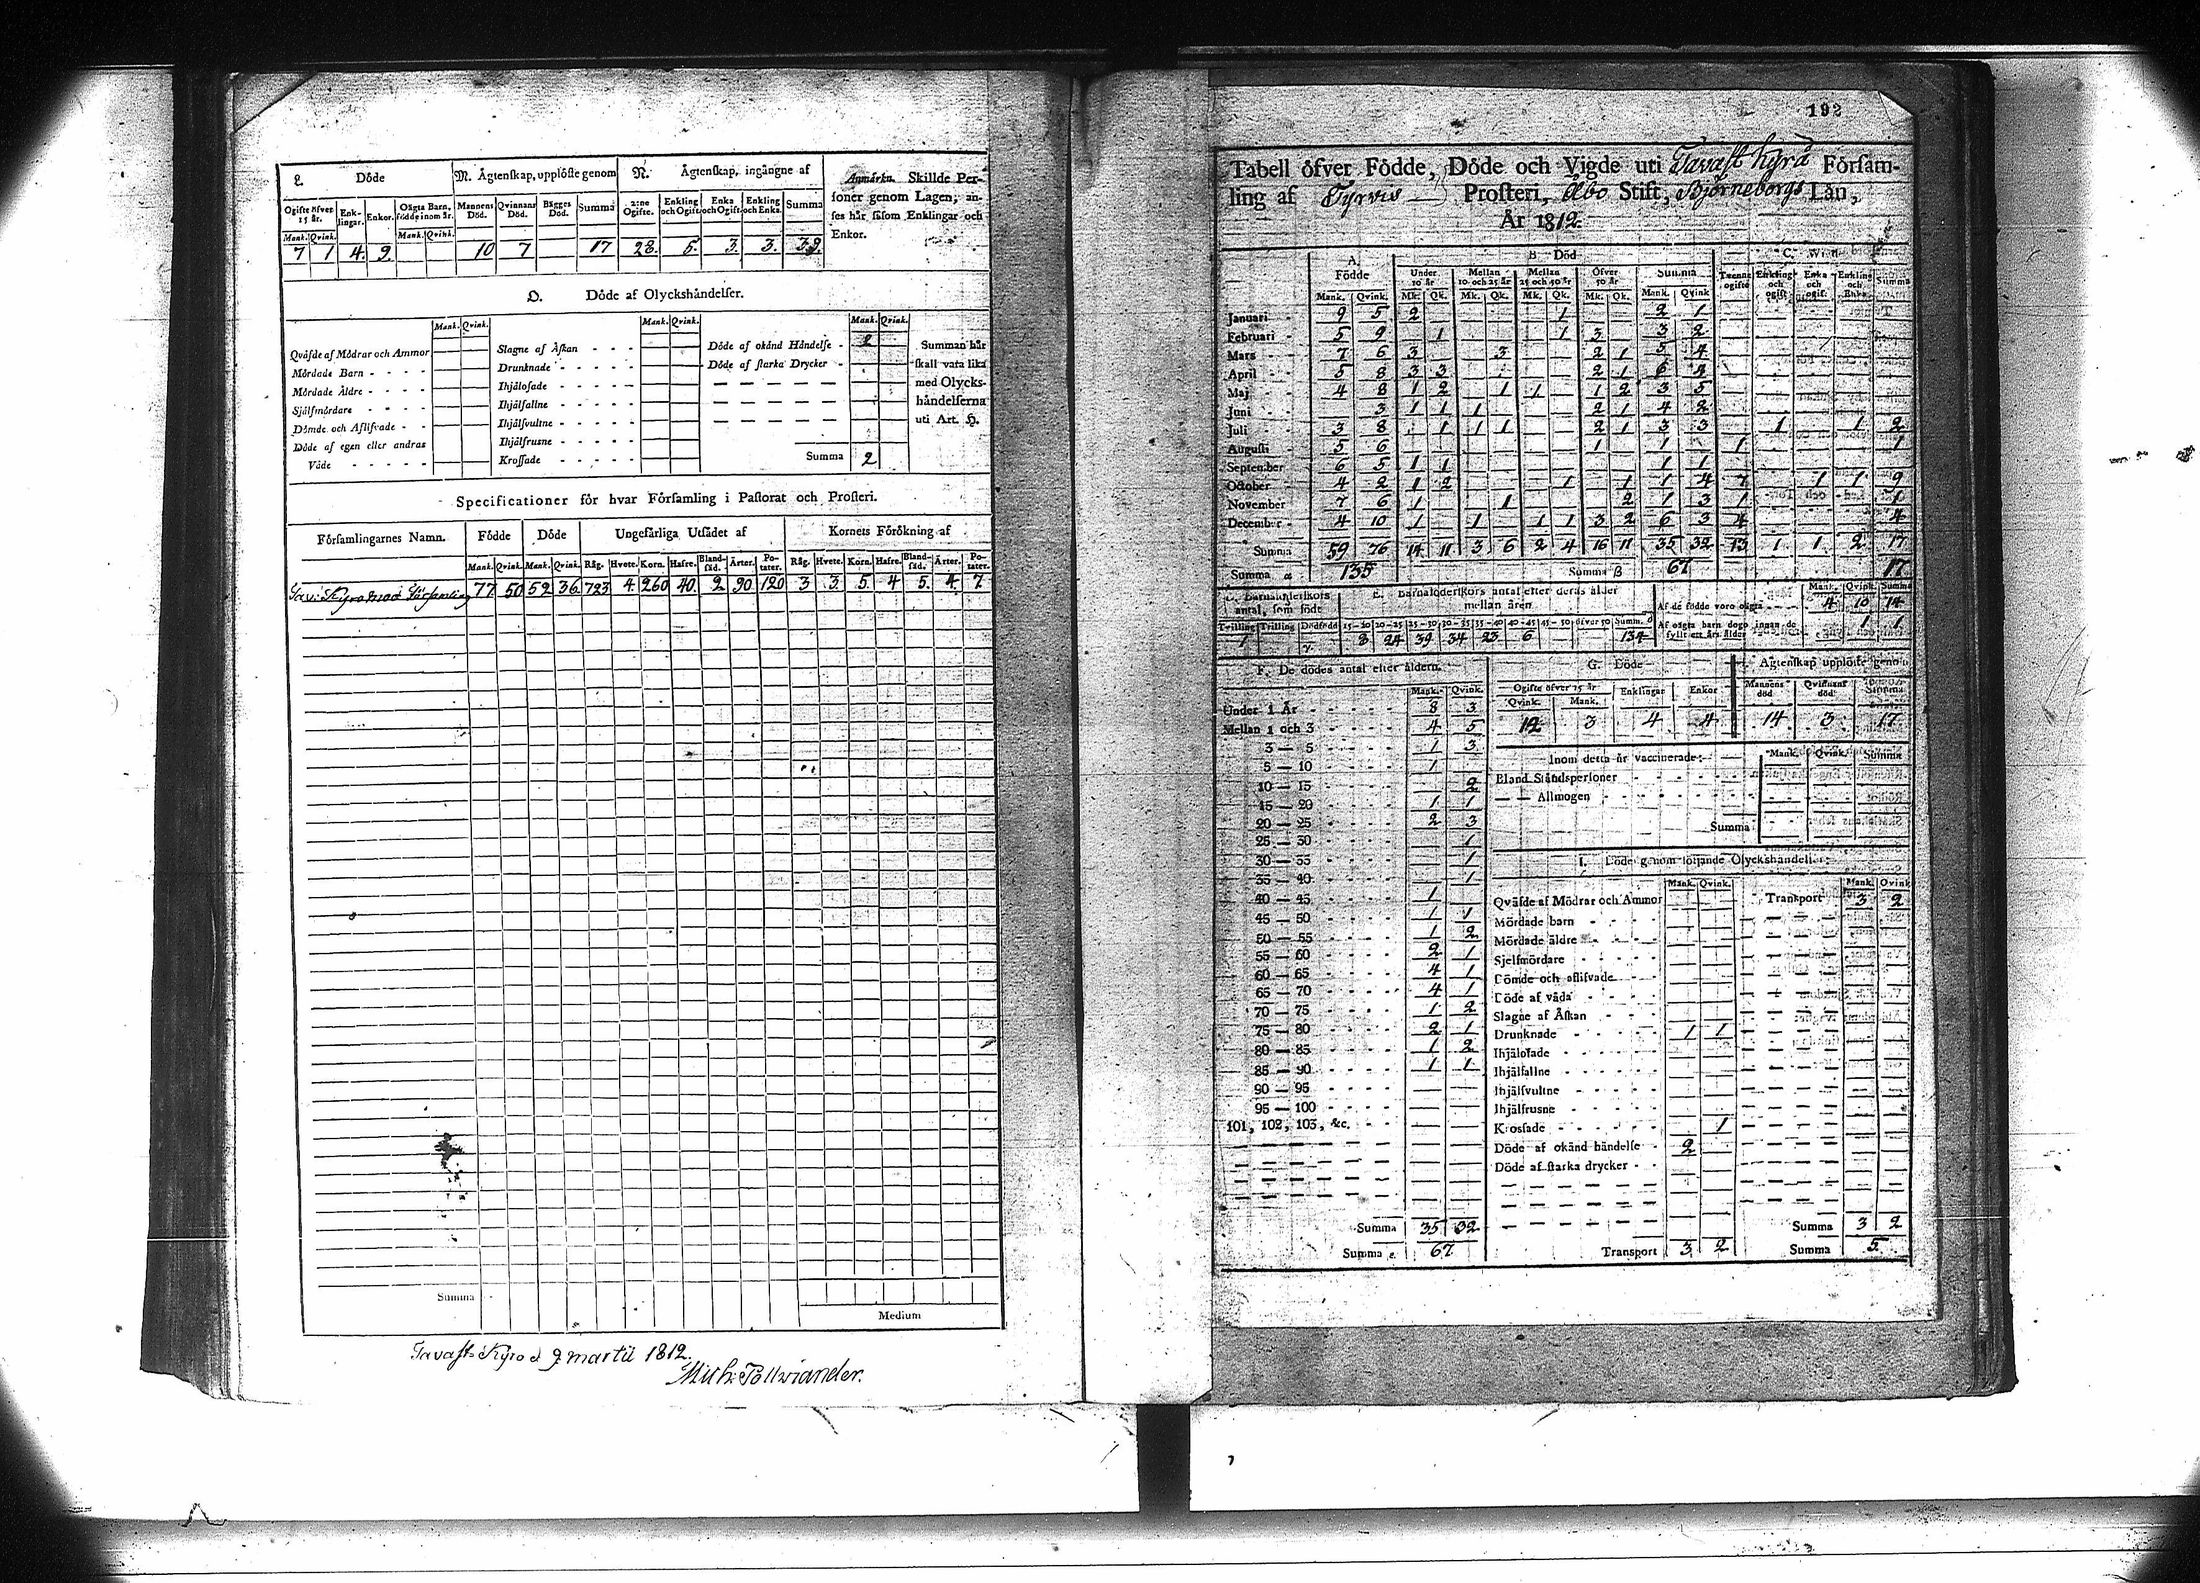 L. Döde
M. Ägtenskap, upplöste genom
N. Ägtenskap, ingångne af
Anmärkn. Skillde Personer genom Lagen, anses här såsom Enklingar och Enkor.
Ogifte öfver 15 år. Enklingar. Enkor. Oägta Barn, födde inom år. Mannens Död. Qvinnans Död. Bägges Död. Summa 2:ne Ogifte. Enkling och Ogift. Enka och Ogift. Enkling och Enka. Summa
Mank. Qvink. Mank. Qvink.
7 1 4. 9. 10 7 17 28. 5. 3. 3. 39.
O. Döde af Olyckshändelser.
Mank. Qvink. Mank. Qvink. Mank. Qvink.
Qväfde af Mödrar och Ammor
Mördade Barn
Mördade Äldre
Självmördare
Dömde och Aflifvade
Döde af egen eller andras
Våde
Slagne af Åskan
Drunknade
Ihjälosade
Ihjälfallne
Ihjälsvultne
Ihjälfrusne
Krossade
Döde af okänd Händelse 2
Döde af starka Drycker
Summa 2
Summan här
skall vara lika
med Olycks-
händelserna
uti Art. H.
Specificationer för hvar Församling i Pastorat och Prosteri.
Församlingarnes Namn. Födde Döde Ungefärliga Utsädet af Kornets Förökning af
Mank. Qvink. Mank. Qvink. Råg. Hvete. Korn. Hafre. Blandsäd. Ärter. Potater. Råg. Hvete. Korn. Hafre. Blandsäd. Ärter. Potater.
Tav: Kyro Församling 77 50 52 36. 723 4. 260 40. 2 90 120 3 3. 5. 4 5. 4. 7
Summa
Medium
Tavast-Kyro d 9 martii 1812.
Mich: Pollviander.
192
Tabell öfver Födde, Döde och Vigde uti Tavast Kyro Försam-
ling af Tyrvis Prosteri, Åbo Stift, Björneborgs Län,
År 1812.
A. Födde
B Död
C. Wigde
Under 10 år Mellan 10 och 25 år Mellan 25 och 50 år Öfver 50 år Summa Tvenne ogifte Enkling och ogift Enka och ogif. Enkling och Enka Summa
Mank. Qvink. Mk. Qk. Mk. Qk. Mk. Qk. Mk. Qk. Mank. Qvink
Januari 9 5 2 1 2 1
Februari 5 9 1 1 3 3 2
Mars 7 6 3 3 2 1 5 4
April 5 8 3 3 1 2 1 6 4
Maj 4 8 1 2 1 1 1 2 3 5
Juni 3 1 1 1 2 1 4 2
Juli 3 8 1 1 1 2 1 3 3 1 1 2
Augusti 5 6 1 1 1 1
September 6 5 1 1 1 1
October 4 2 1 2 1 1 1 4 7 1 1 9
November 7 6 1 1 2 1 3 1 1
December 4 10 1 1 1 1 3 2 6 3 4 4
Summa 59 76 14 11 3 6 2 4 16 11 35 32 13 1 1 2 17
Summa α 135 Summa β 67 17
D. Barnaföderskors antal, som födt
Tvilling Trilling Dödfödd
1 7.
E. Barnaföderskors antal efter deras ålder mellan åren
15-20 20-25 25-30 30-35 35-40 40-45 45-50 öfver 50 Summ.
8 24 39 34 23 6 134
Mank. Qvink. Summa
Af de födde voro oägta 4 10 14
Af oägta barn dogo innan de fyllt ett års ålder 1 1
F. De dödes antal efter åldern.
Mank. Qvink.
Under 1 År 8 3
Mellan 1 och 3 4 5
3 — 5 1 3
5 — 10 1
10 — 15 2
15 — 20 1 1
20 — 25 2 3
25 — 30 1
30 — 35 1
35 — 40 1
40 — 45 1
45 — 50 1 1
50 — 55 1 2
55 — 60 2 1
60 — 65 4 1
65 — 70 4 1
70 — 75 1 2
75 — 80 2 1
80 — 85 1 2
85 — 90 1 1
90 — 95
95 — 100
101, 102, 103, &c.
Summa 35 32
Summa 67
G. Döde
Ogifte öfver 15 år Enklingar Enkor
Qvink. Mank.
12 3 4 4
Ägtenskap upplöste genom
Mannens död Qvinnans död Summa
14 3 17
Inom detta år vaccinerade: Mank. Qvink. Summa
Bland Ståndspersoner
— — Allmogen
Summa
I. Döde genom följande Olyckshändelser:
Mank. Qvink. Mank. Qvink
Qväfde af Mödrar och Ammor
Mördade barn
Mördade äldre
Sjelfmördare
Dömde och aflifvade
Döde af våda
Slagne af Åskan
Drunknade 1 1
Ihjälosade
Ihjälfallne
Ihjälsvultne
Ihjälfrusne
Krossade 1
Döde af okänd händelse 2
Döde af starka drycker
Transport 3 2
Transport 3 2
Summa 3 2
Summa 5.